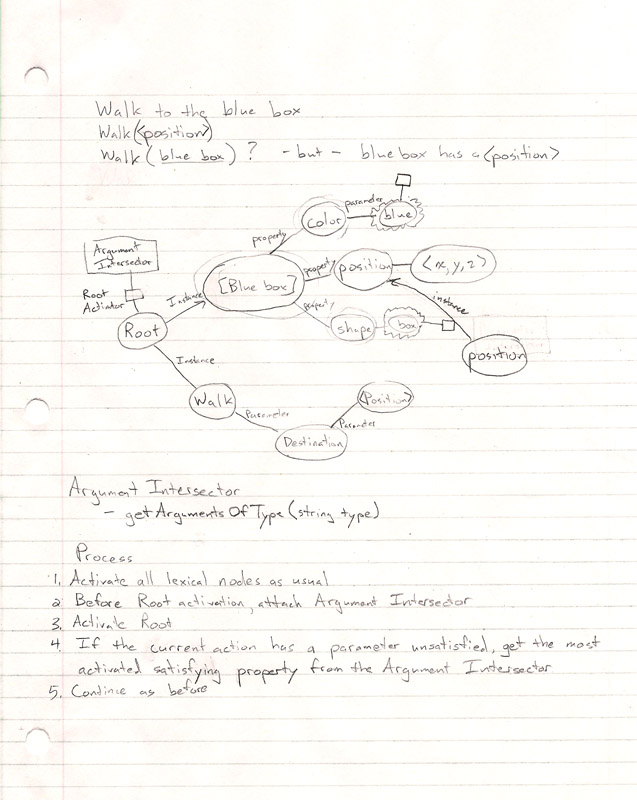 Walk to the blue box
Walk(<position>)
Walk (blue box) ? - but - blue box has a <position>
parameter
color
blue
property
Argument
Intersector
Root
Activator
Instance
[Blue box]
property
position
<x,y,z>
instance
property
shape
box
Root
position
Instance
Walk
Parameter
<Position>
Parameter
Destination
Argument Intersector
- getArgumentsOfType(string type)
Process
1. Activate all lexical nodes as usual
2. Before Root activation, attach Argument Intersector
3. Activate Root
4. If the current action has a parameter unsatisfied, get the most
activated satisfying property from the Argument Intersector
5. Continue as before